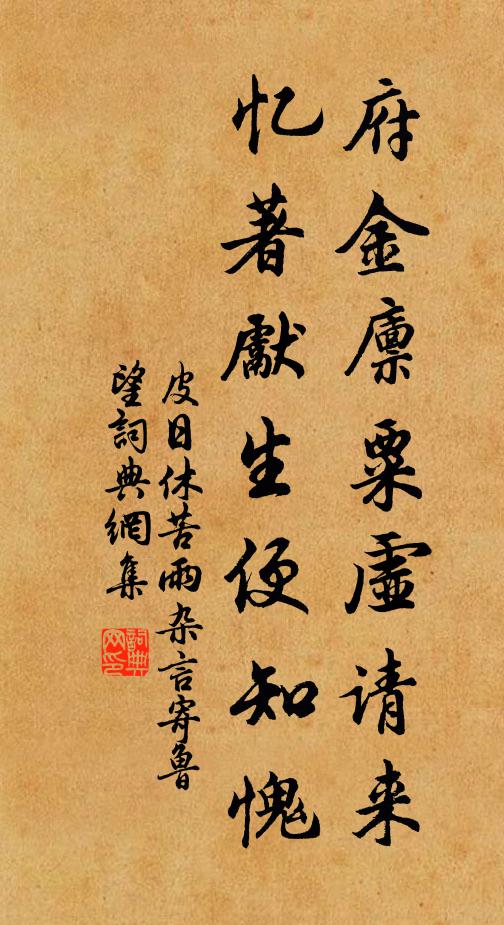 府金廪粟虚请来
忆著献生便知愧
皮日休苦雨杂言寄鲁
望詞典網集
詞典网印